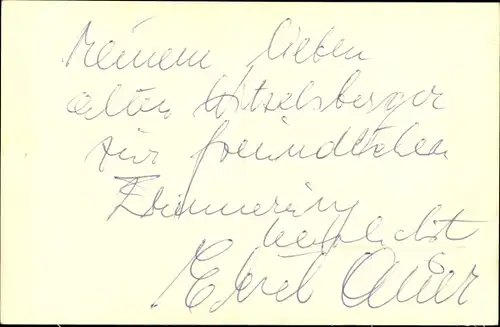 Meinem lieben
alten Witzelsberger
zur freundlichen
Erinnerung
herzlichst
Erich Auer